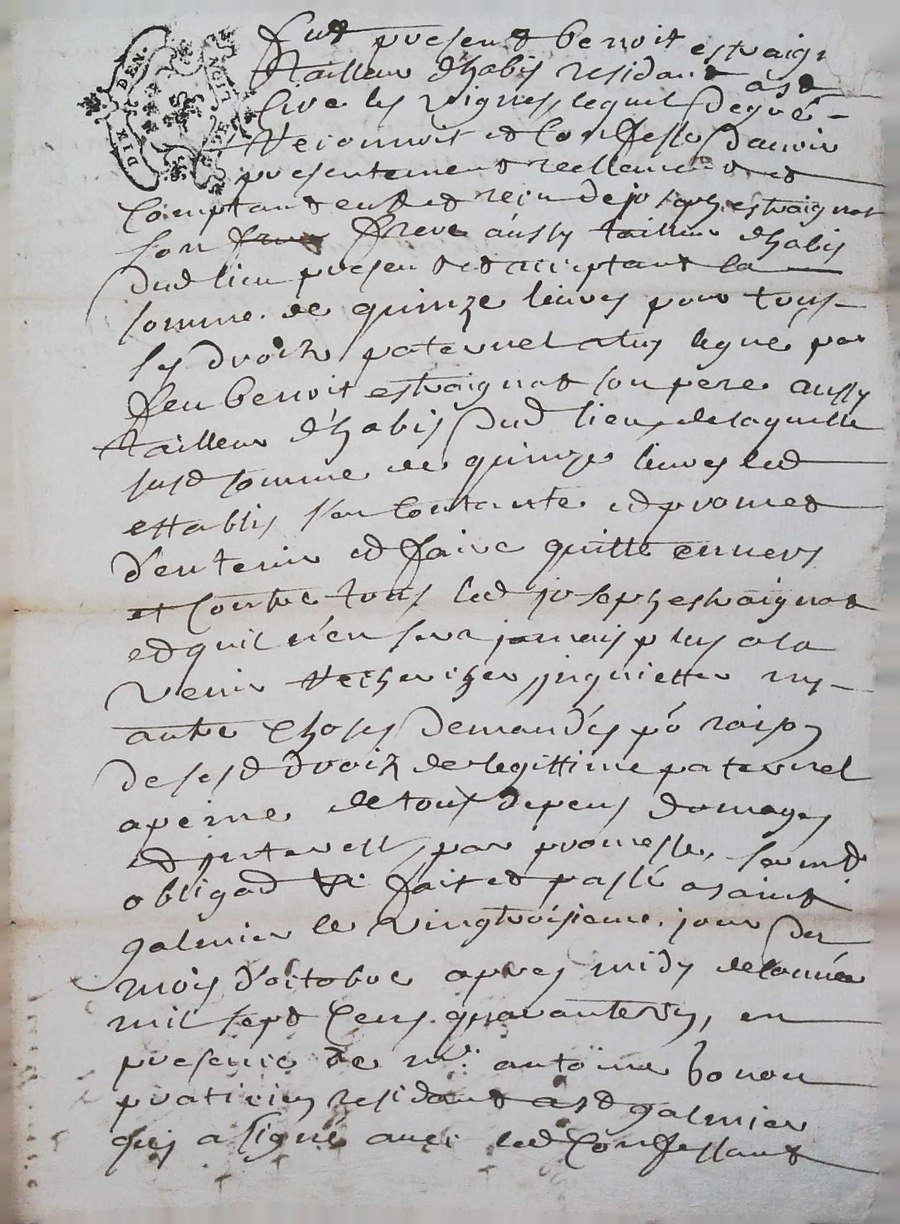 DIX DEN. LION
fut present benoit estraignat
tailleur d'habis residant a st
Cire les vignes, lequel de gré
reconnoit et Confesse d'avoir
presentement reellement et
Comptant eust et reçu de joseph estraignat
son frere aussy tailleur d'habis
dud lieu present et acceptant la
somme de quinze livres pour tous
ses droix paternel a luy legué par
feu benoit estraignat son pere aussy
tailleur d'habis dud lieu, de laquelle
susd somme de quinze livres led
ettablis s'en Contante et promet
d'en tenir et faire quitte envers
et Contre tous led joseph estraignat
et quil n'en sera jamais plus a la
venir rechercher, jnquietter ny
autre Choses demandés po raison
de sesd droix de legittime paternel
a peine de tous depens domages
et jnterest, par promesse, serment
obligaon fait et passé a saint
galmier le vingtroisieme jour du
mois d'octobre apres midy de l'année
mil sept Cens quarante, en
presence de mr: antoine bonou
praticien residant a st galmier
qui a signé avec led Confessant